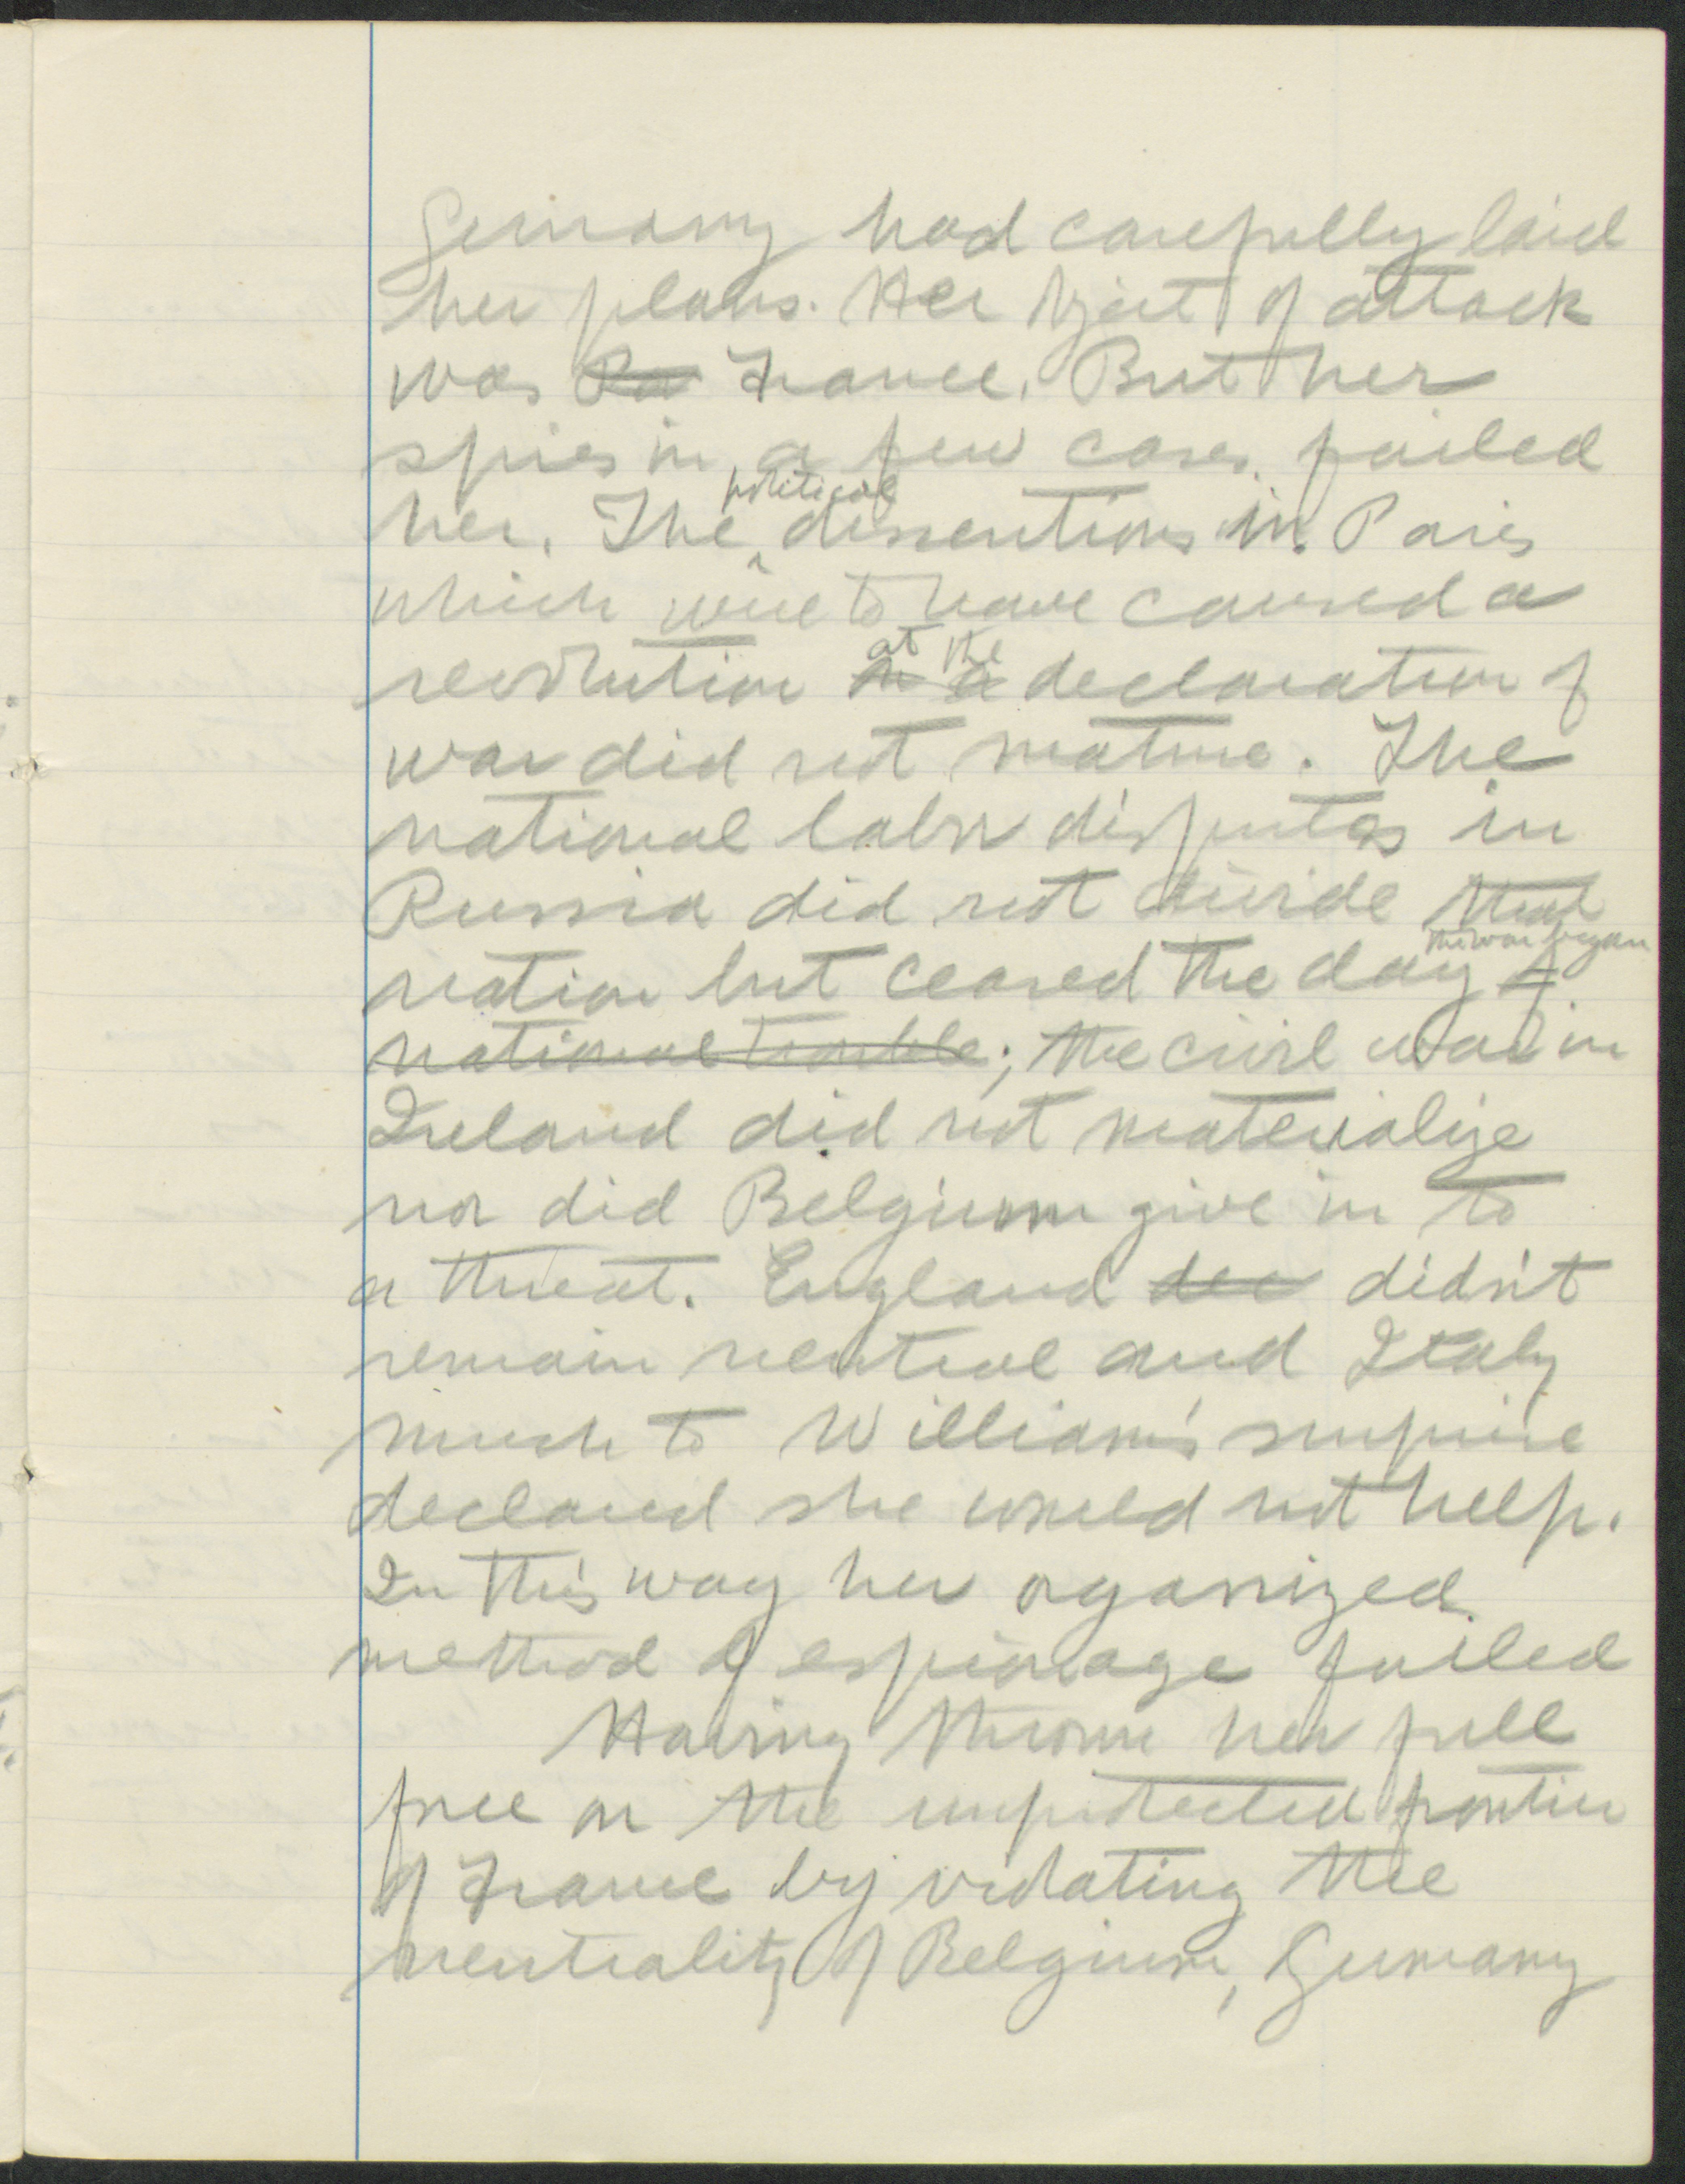 Germany had carefully laid
her plans. Her object of attack
was Pa France. But her
spies in a few cases failed
her. The political dissentions in Paris
which were to have caused a
revolution in a at the declaration of
war did not mature. The
national labor disputes in
Russia did not divide that
nation but ceased the day of the war began
national trouble; the civil war in
Ireland did not materialize
nor did Belgium give in to
a threat. England dec didn't
remain neutral and Italy
much to William's surprise
declared she would not help.
In this way her organized
method of espionage failed
Having thrown her full
force on the unprotected frontier
of France by violating the
neutrality of Belgium, Germany